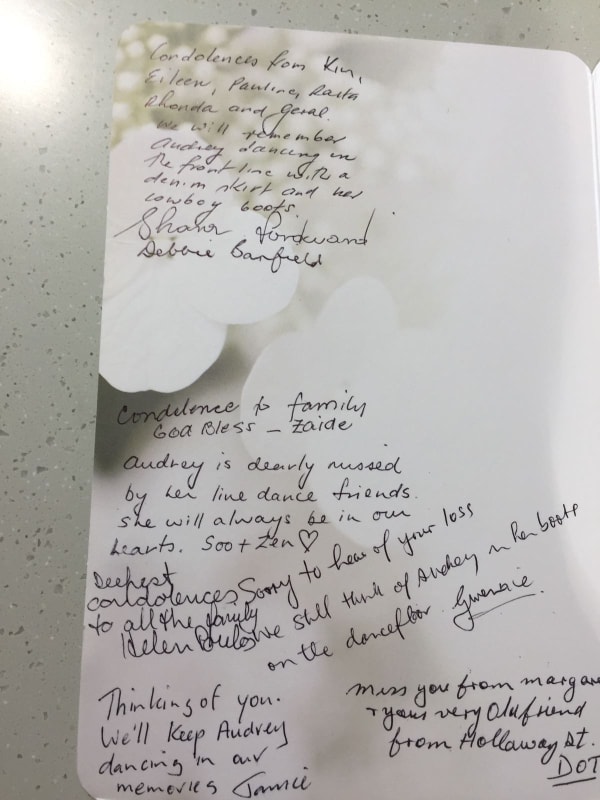 Condolences from Kim,
Eileen, Pauline, Rasta
Rhonda and Geral.
We will remember
Audrey dancing in
the front line with a
denim skirt and her
cowboy boots.
Debbie Banfield
Condolence to family
God Bless - Zaide
Audrey is dearly missed
by her line dance friends.
she will always be in our
hearts. Soo + Zen ♡
Deepest
condolences
to all the family
Helen Poulos
Sorry to hear of your loss
We still think of Audrey in her boots
on the dancefloor.
Thinking of you.
We'll Keep Audrey
dancing in our
memories Jannie
Miss you from margare
+ your very Old friend
from Hollaway St.
DOT